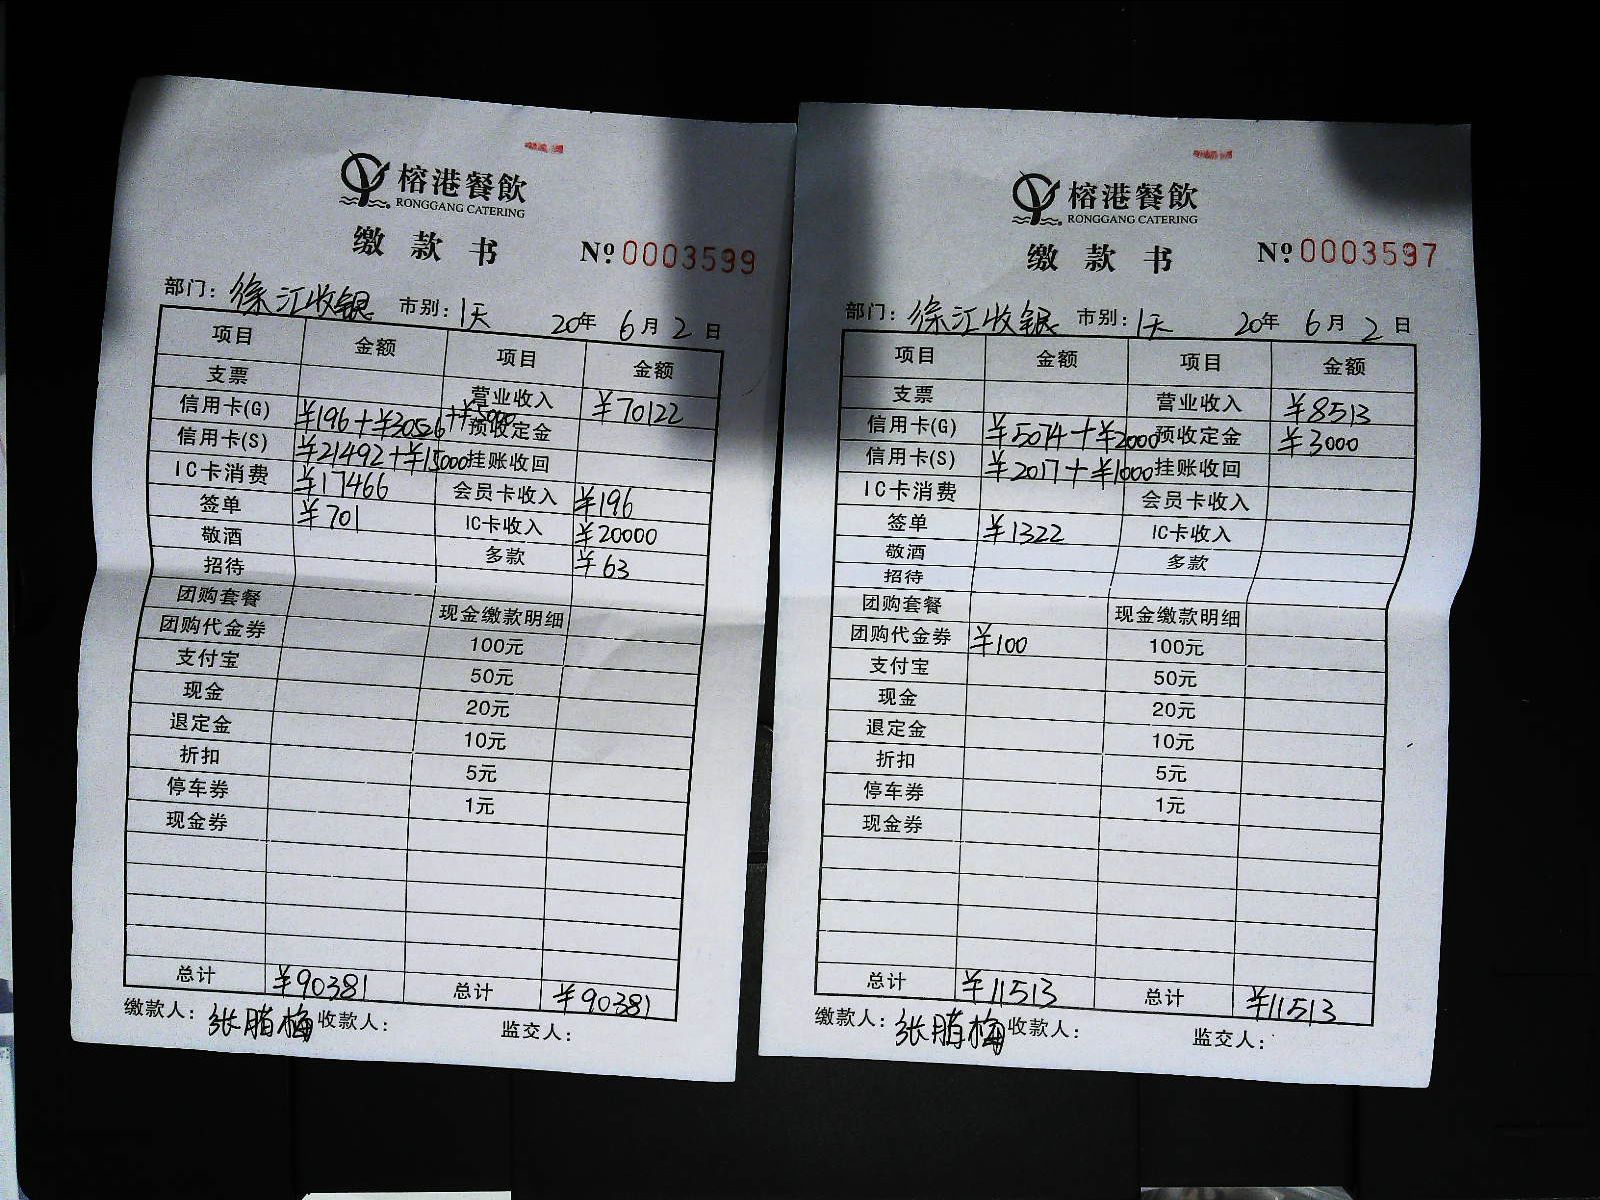 榕港餐飲
RONGGANG CATERING
缴 款 书 № 0003599
部门: 徐汇收银 市别: 1天 20年 6月 2日
项目 金额 项目 金额
支票 营业收入 ¥70122
信用卡(G) ¥196+¥30526+¥5000 预收定金
信用卡(S) ¥21492+¥15000 挂账收回
IC卡消费 ¥17466 会员卡收入 ¥196
签单 ¥701 IC卡收入 ¥20000
敬酒 多款 ¥63
招待
团购套餐 现金缴款明细
团购代金券 100元
支付宝 50元
现金 20元
退定金 10元
折扣 5元
停车券 1元
现金券
总计 ¥90381 总计 ¥90381
缴款人: 张腊梅 收款人: 监交人:
榕港餐飲
RONGGANG CATERING
缴 款 书 № 0003597
部门: 徐汇收银 市别: 1天 20年 6月 2日
项目 金额 项目 金额
支票 营业收入 ¥8513
信用卡(G) ¥5074+¥2000 预收定金 ¥3000
信用卡(S) ¥2017+¥1000 挂账收回
IC卡消费 会员卡收入
签单 ¥1322 IC卡收入
敬酒 多款
招待
团购套餐 现金缴款明细
团购代金券 ¥100 100元
支付宝 50元
现金 20元
退定金 10元
折扣 5元
停车券 1元
现金券
总计 ¥11513 总计 ¥11513
缴款人: 张腊梅 收款人: 监交人: